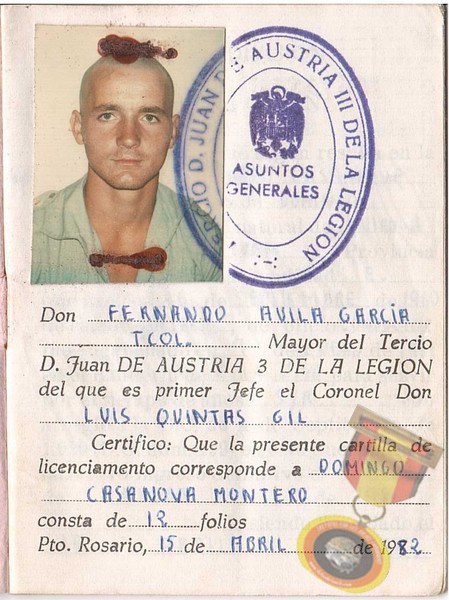 TERCIO D. JUAN DE AUSTRIA III DE LA LEGION
ASUNTOS
GENERALES
Don FERNANDO AVILA GARCIA
TCOL. Mayor del Tercio
D. Juan DE AUSTRIA 3 DE LA LEGION
del que es primer Jefe el Coronel Don
LUIS QUINTAS GIL
Certifico: Que la presente cartilla de
licenciamento corresponde a DOMINGO
CASANOVA MONTERO
consta de 12 folios
Pto. Rosario, 15 de ABRIL de 1982